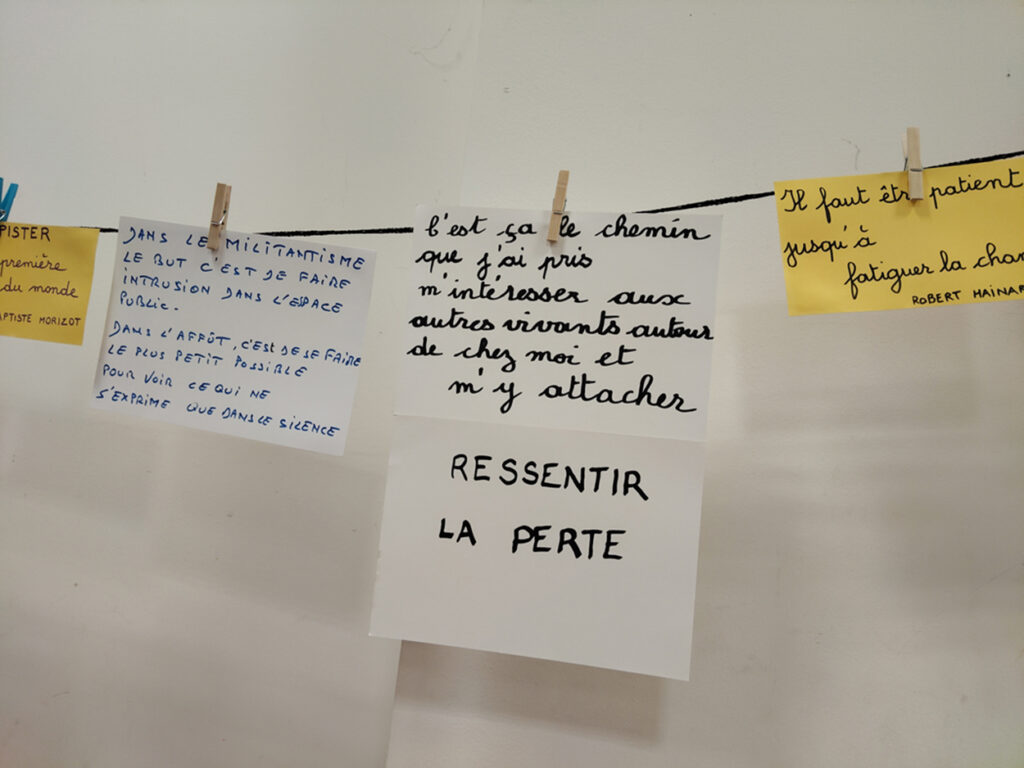 PISTER
première
du monde
APTISTE MORIZOT
DANS LE MILITANTISME
LE BUT C'EST DE FAIRE
INTRUSION DANS L'ESPACE
PUBLIC.
DANS L'AFFÛT, C'EST DE SE FAIRE
LE PLUS PETIT POSSIBLE
POUR VOIR CE QUI NE
S'EXPRIME QUE DANS LE SILENCE
C'est ça le chemin
que j'ai pris
m'intéresser aux
autres vivants autour
de chez moi et
m'y attacher
RESSENTIR
LA PERTE
Il faut être patient
jusqu'à
fatiguer la
ROBERT HAINAR